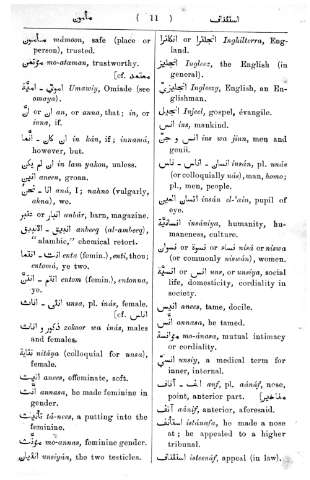 مأمون
( 11 )
استئناف
مأمون mâmoon, safe (place or
person), trusted.
مؤتمن mo-ataman, trustworthy.
[cf. معتمد
Umawiy, Omiade (see
omaya).
ان or أن an, or anna, that; in, or
inna, if.
in kân, if; innamâ,
however, but.
ان لم يكن in lam yakon, unless.
انين aneen, groan.
انا - نحن anâ, I; nahno (vulgarly,
ahna), we.
انبار or عنبر anbâr, barn, magazine.
انبيق - الانبيق anbeeg (al-ambeeg),
"alambic," chemical retort.
انت - انتما enti (femin.), enti, thou;
entomâ, ye two.
انتم - انتن entom (femin.), entonna,
yo.
انثى - اناث unsa, pl. inâs, female.
[cf. اناس
ذكور و اناث zokoor wa inâs, males
and females.
نتاية nitâya (colloquial for ansa),
female.
انيث anees, effeminate, soft.
أنث annasa, he made feminine in
gender.
تأنيث tâ-nees, a putting into the
feminine.
مؤنث mo-annas, feminine gender.
انثيان unsiyân, the two testicles.
انجلترا or انكلترا Inghilterra, Eng-
land.
انجليز Ingleez, the English (in
general).
انجليزي Ingleezy, English, an En-
glishman.
انجيل Injeel, gospel, évangile.
انس ins, mankind.
انس و جن ins wa jinn, men and
genii.
انسان - اناس - ناس insân, pl. unâs
(or colloquially nâs), man, homo;
pl., men, people.
انسان العين insân el-'ain, pupil of
eye.
انسانية insâniya, humanity, hu-
maneness, culture.
نسا or نسوة or نسوان nisâ or niswa
(or commonly niswân), women.
انس or انسية uns, or unsiya, social
life, domesticity, cordiality in
society.
انيس anees, tame, docile.
أنس annasa, he tamed.
مؤانسة mo-ânasa, mutual intimacy
or cordiality.
انسي unsiy, a medical term for
inner, internal.
انف - آناف anf, pl. aânâf, nose,
point, anterior part.
آنف aânif, anterior, aforesaid.
استأنف istânafa, he made a nose
at; he appealed to a higher
tribunal.
استئناف isteenâf, appeal (in law).